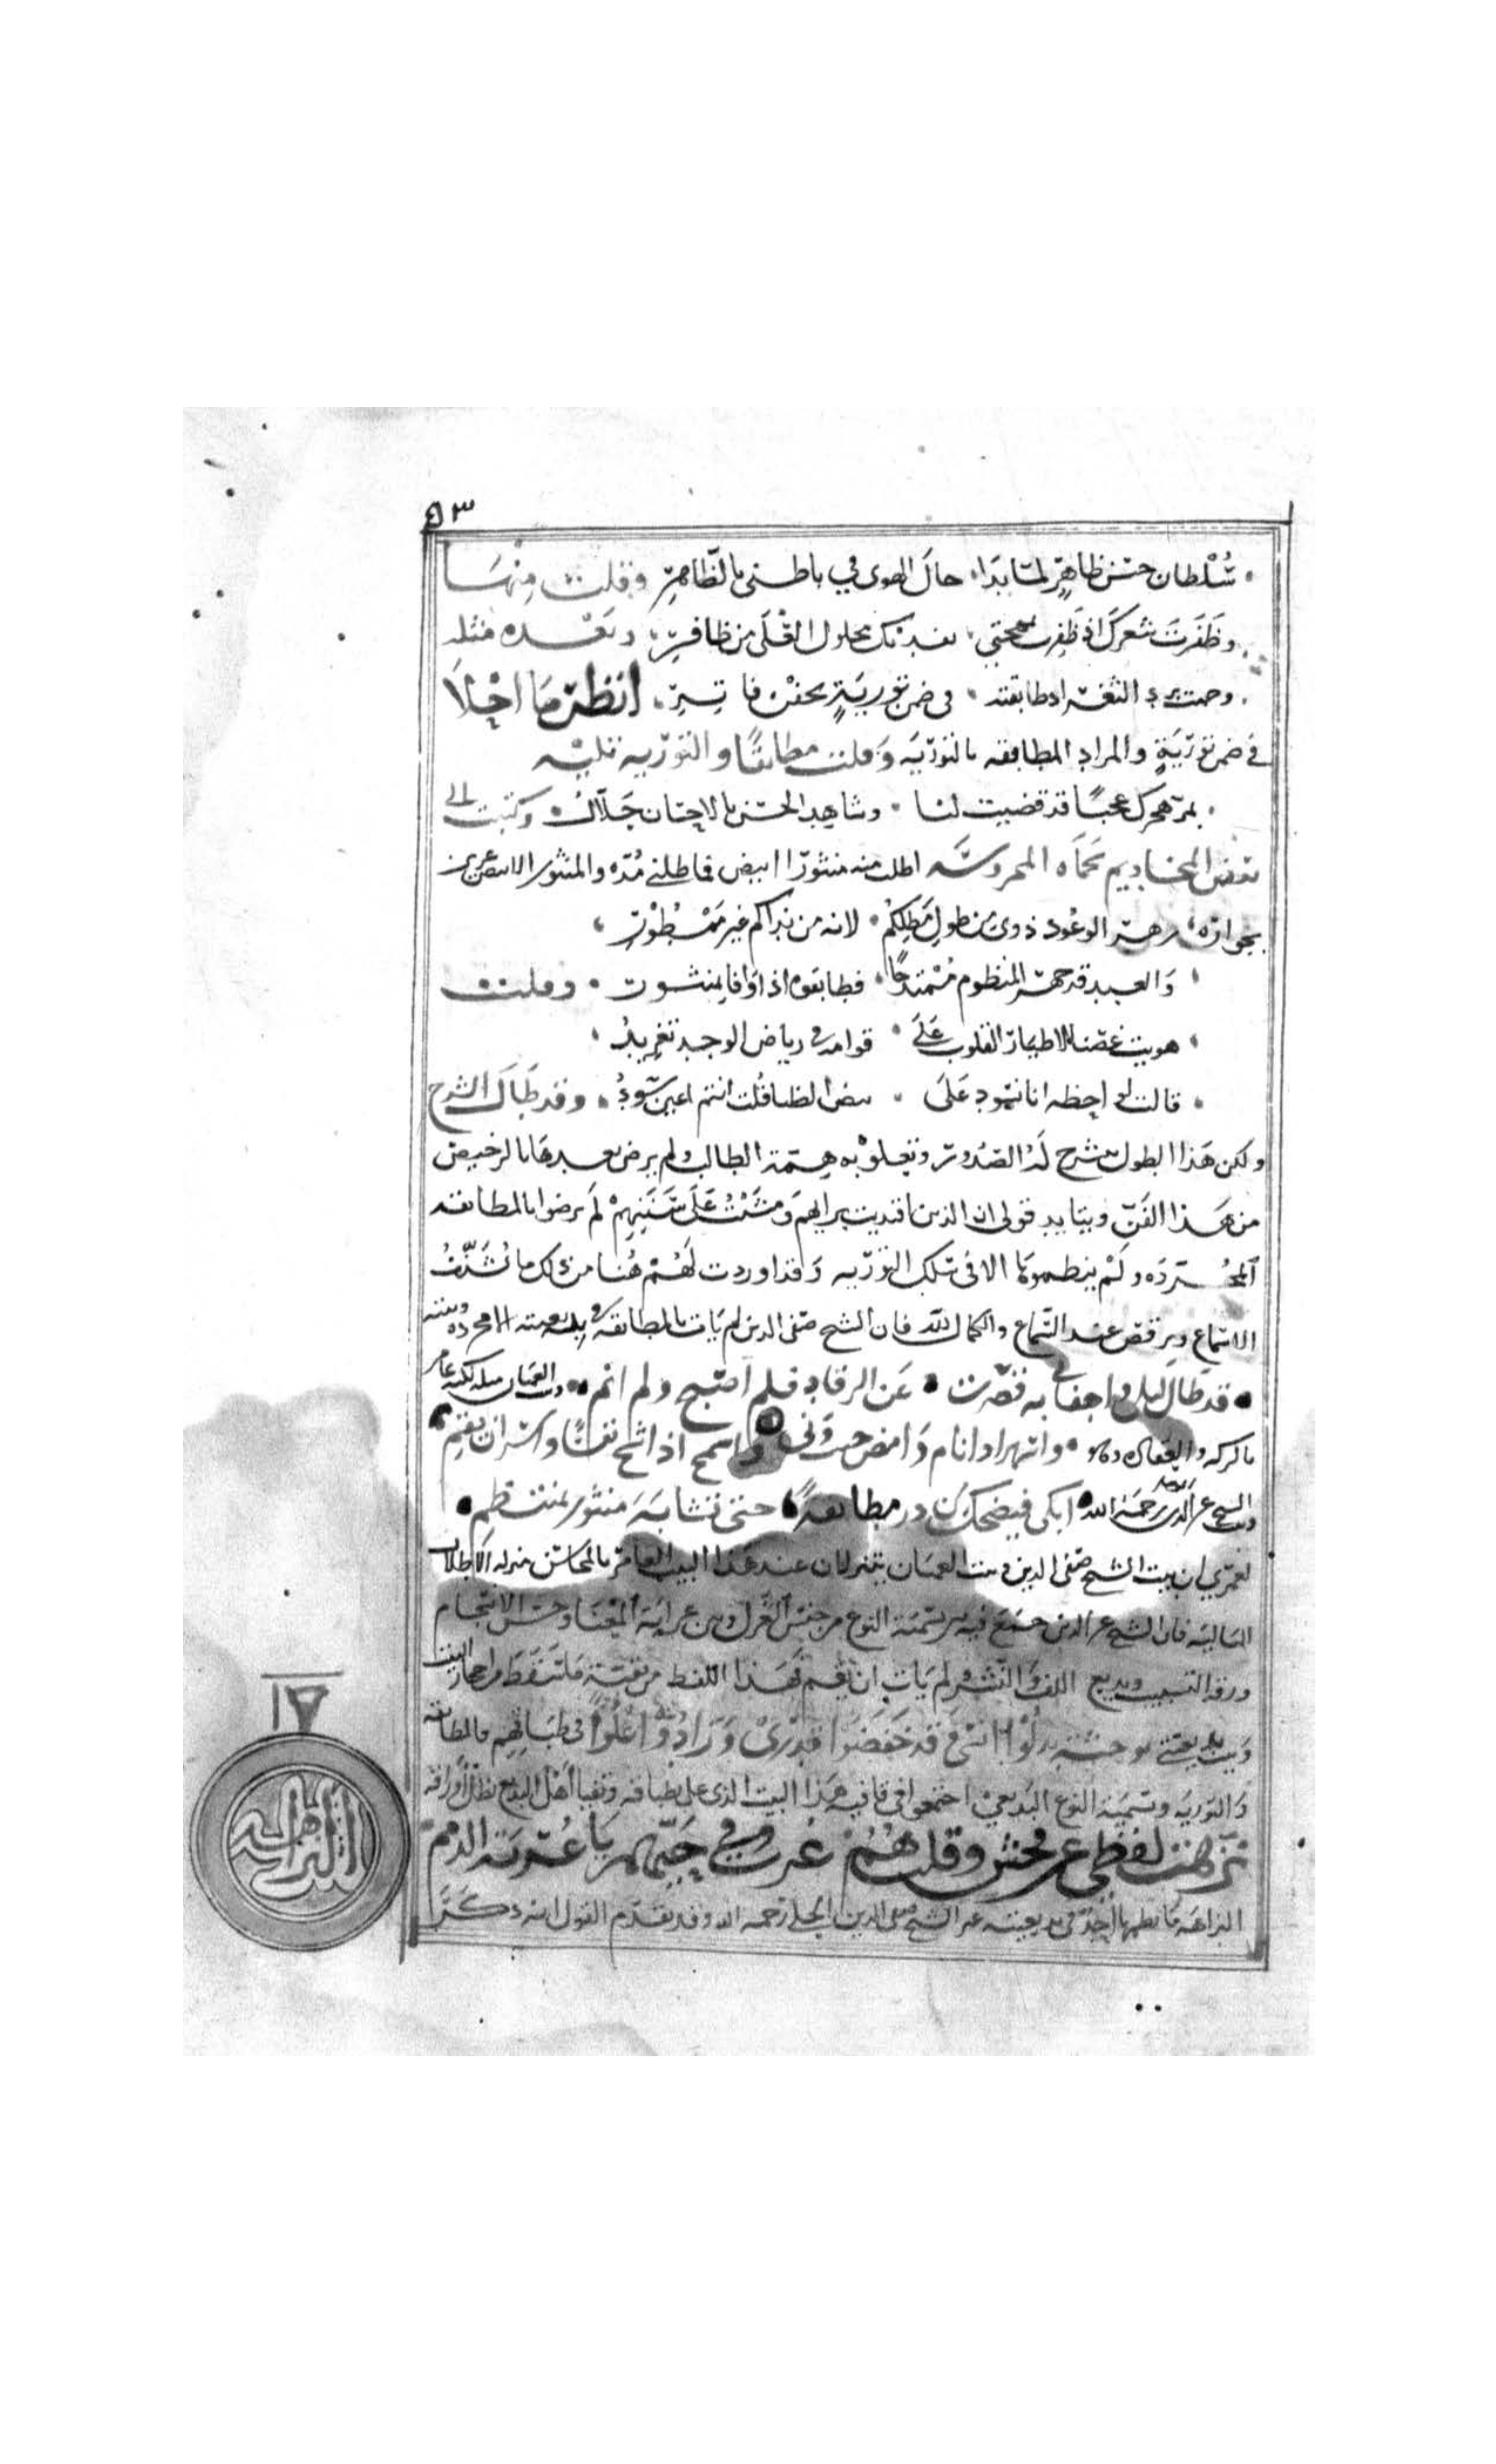 ٥٣
سُلْطان حسن ظاهرٍ لما بدا حال الهوى في باطنى بالظاهرِ وقلت منها
وظَفَرتَ شعركَ اذ ظَفِرت بمهجتي بمحلول القلى من ظافرِ وبعده مثله
الثغر اذ طابقته في ضمن توريةٍ بجفن فاتِرِ انظر ما احْلاَ
في ضمن توريَةٍ والمراد المطابقه بالتوريَه وقلت مطابقًا والتوريه تليه
بمر هجرك عجبًا قد قضيت لنا وشاهد الحسن بالاحسان حَلاّك وكتبت الى
بعض المخاديم بحماه المحروسَه اطلب منه منثورًا ابيض فماطلنى مُدّه والمنثور الابيض عزيز
بجوازه زهر الوعُود ذوى من طول مَطلِكُم لانه من نداكم غير ممْطُوْر
وَالعبد قد جهز المنظوم مُمْتدحًا فطابقوه اذا وَافا بمنثور وقلت
هويت غصنا لاطيار القلوب عَلَى قوامه في رياض الوجد تغريدُ
قالت لواحظه انا نسود عَلَى بيض الظبا قُلت انتم اعين سُودُ وقد طَال الشرح
ولكن هَذا الطول ينشرح لَهُ الصّدُور وتعلو به همّة الطالب ولم يرض بعدها بالرخيص
من هَذا الفَنّ ويتايد قولى ان الذين اقتديت برايهم ومشَيْتُ عَلَى سَننِهِمْ لَم يرضوا بالمطابقه
المجُرّدَه ولَمْ ينظموهَا الا فى سلك التوريه وَقد اوردت لهُمْ هُنا من ذلك ما يُشَنّفُ
الاسماع ويرقص عند السّماع والكمال لله فان الشيخ صَفى الدين لم يَات بالمطابقه في بديعيته الا مجرده وبيته
قد طَال ليلى واجفانى به قصرت عَن الرقاد فلم اصبح ولم انم وبيت العميان مثله لكنه عامر
بالركه والعقاده وهو واسهر اذا نام وَامض حيث وَنى واسمح اذا شح نفسًا واسر ان يقم
وبيت الشيخ عز الدين رحمَهُ الله ابكى فيضحك عن در مطابقةً حتى تشابَه منثور بمنتظم
لعمرى ان بيت الشيخ صفى الدين وبيت العميان ينزلان عند هَذا البيت العامر بالمحاسن منزله الاطلال
الباليه فان الشيخ عز الدين جمَع فيه بين تسميَة النوع من جنس الغَزل وبين غرابَة المعْنَا وحسن الانسجام
ورقة التشبيب وبديع اللف وَالنّشْر لم يَات ان نظم هَذا اللفظ من نفسَه مَا تنقط من احجار البيت
وَبيت بديعيتى بوحشَةٍ بدلُوْا انسى وَقد خَفَضُوا قدْرِىْ وَزَادُوْا عُلُوًّا فى طبَاقِهِم فالمطابقه
وَالتوريَه وتسميَة النوع البَدْيعىْ اجتمعوا فى قافيه هَذا البيت الذى على بطباقه وتفيا اَهْل البديع بظلال اوراقه
نزّهت لفظى عن فحش وقلت هُمْ عُرب وفى حَيّهم يَا غُربَة الذمم
النزاهَه مَا نظمها احَد فى بديعيته غير الشيخ صفى الدين الحلى رحمه الله وقد تقدّم القول انه ذكر
١٧
النزاهه